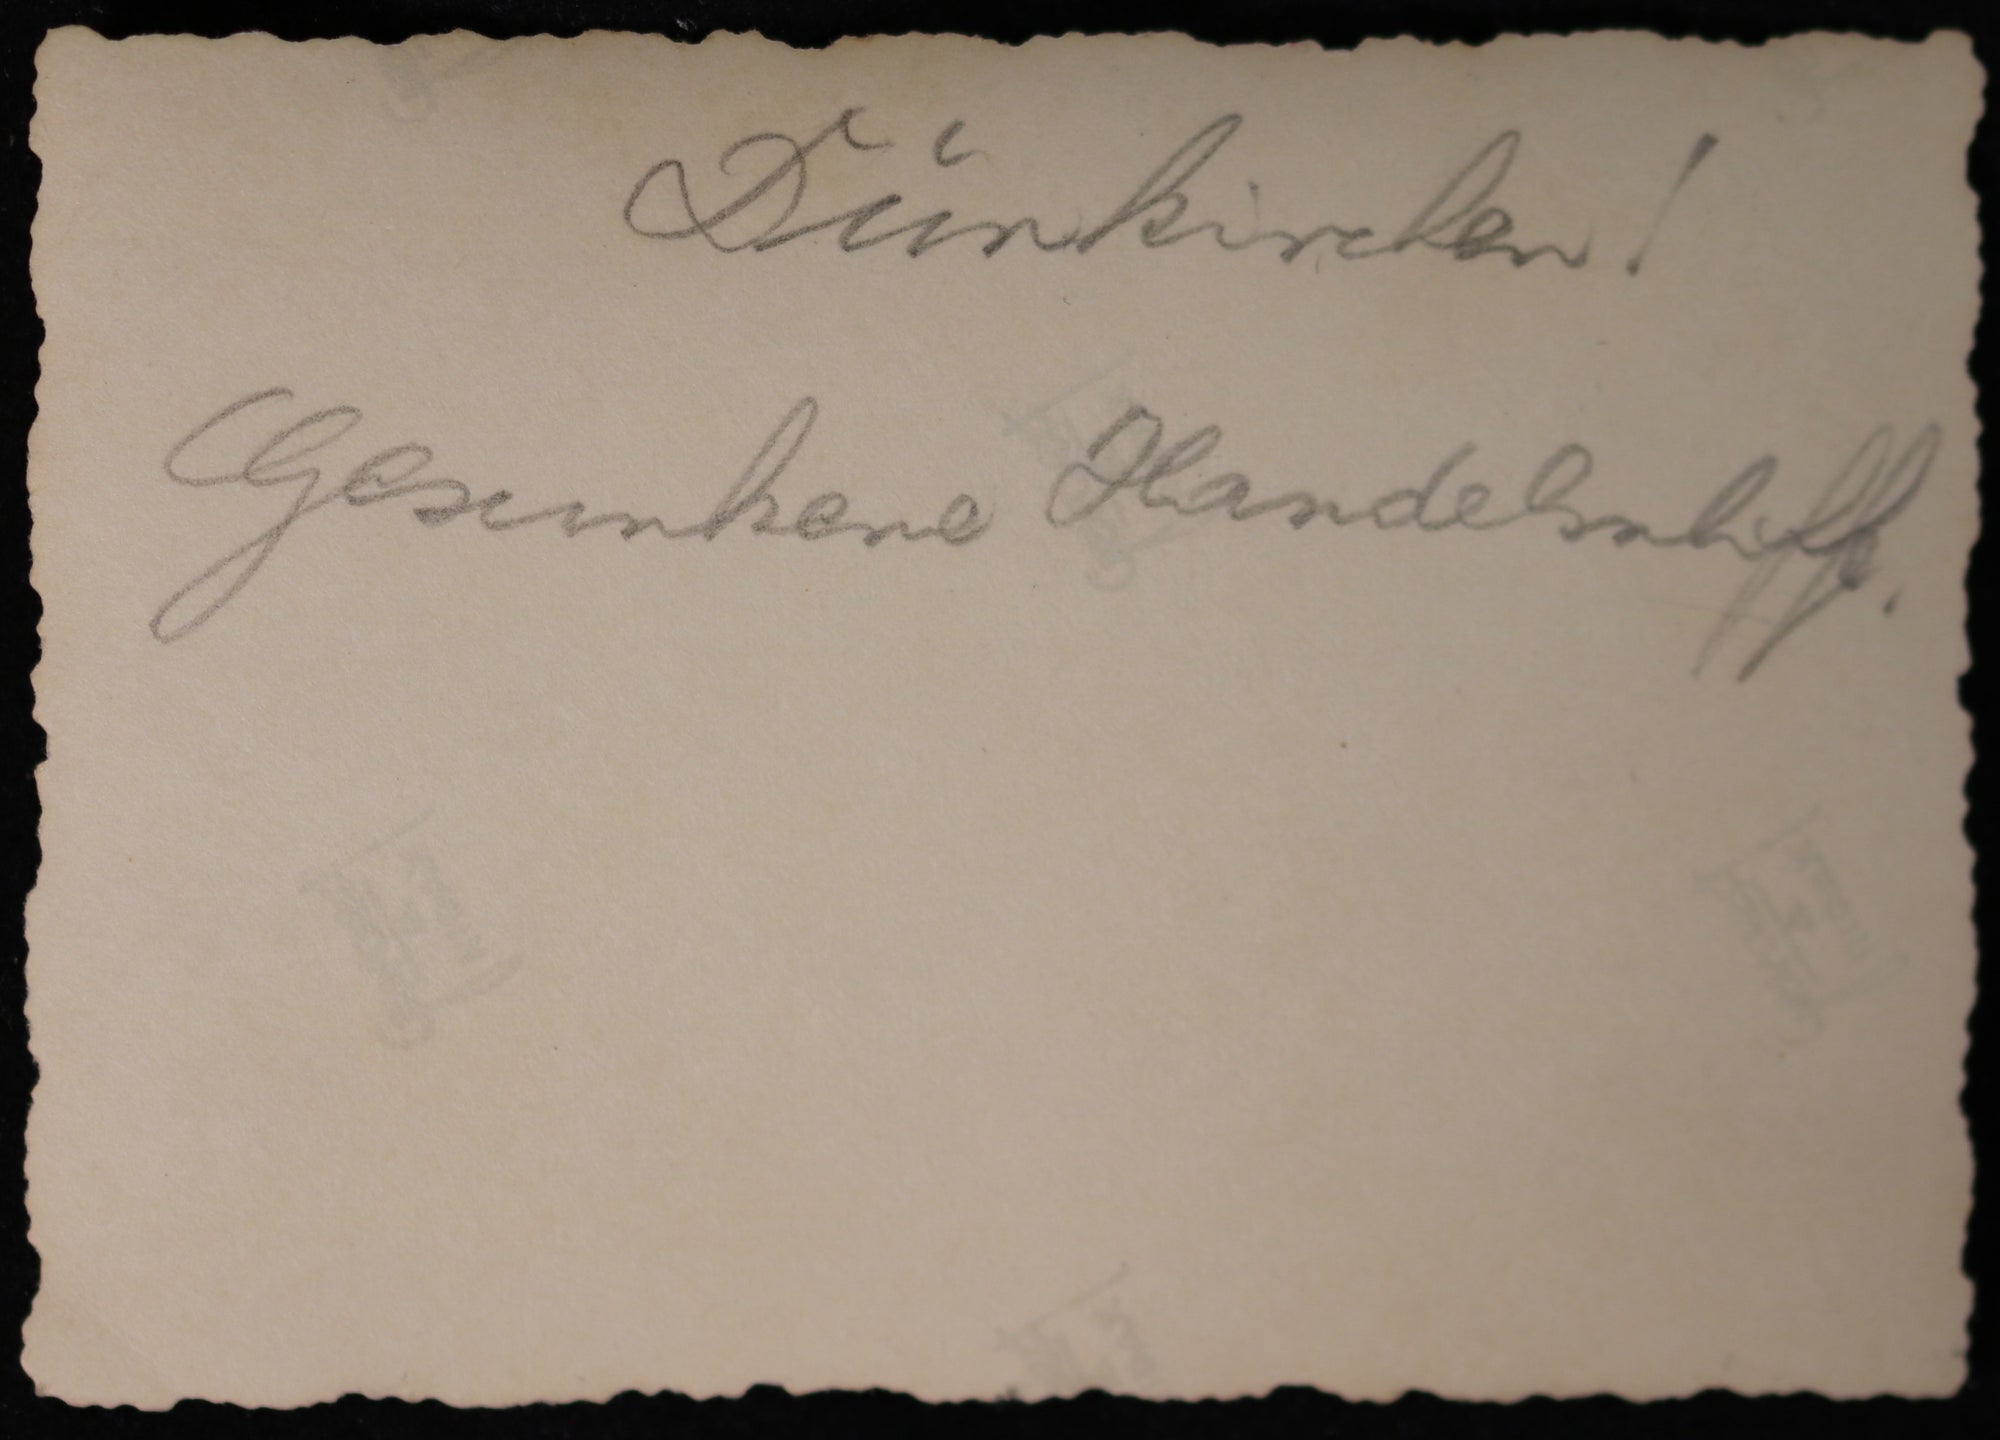 Dünkirchen!
Gesunkene Handelsschiffe.